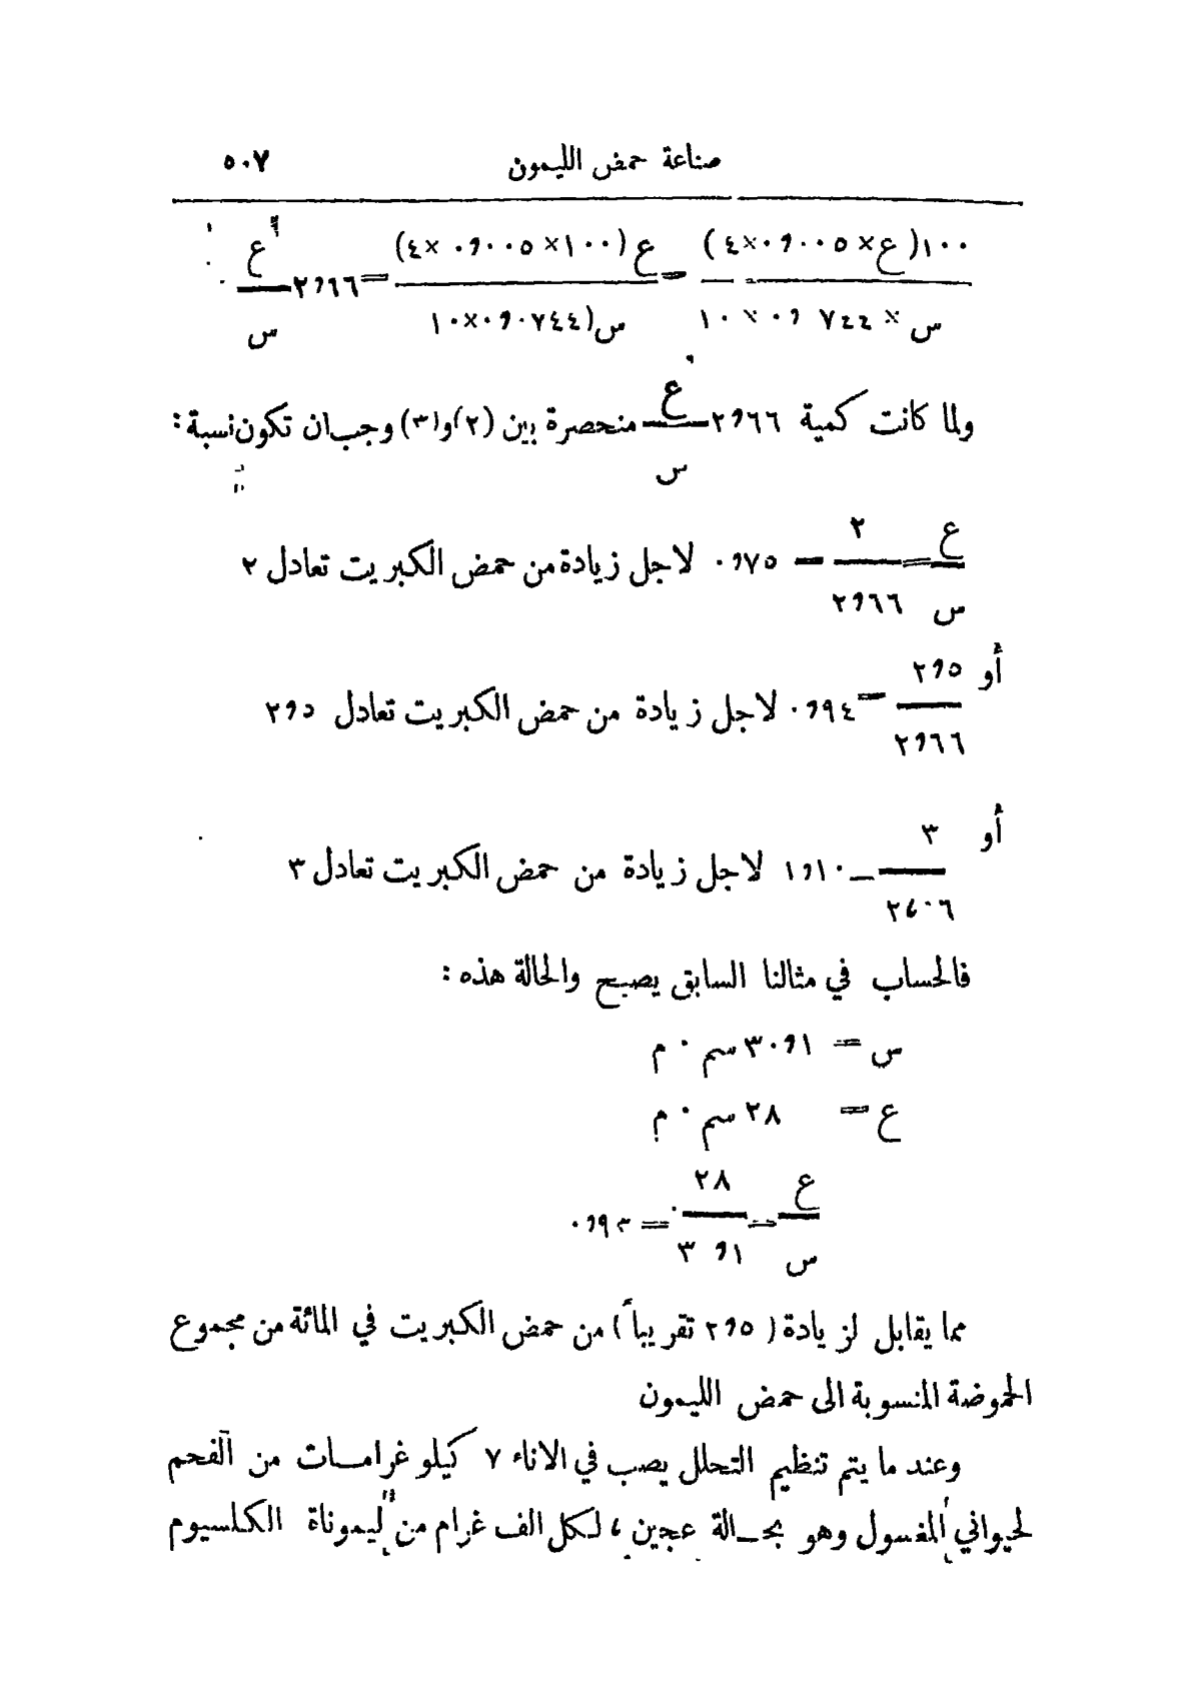 صناعة حمض الليمون ٥٠٧
١٠٠(ع×٠٫٠٠٥×٤) / س × ٠٫٠٧٤٤ × ١٠ = ع(١٠٠×٠٫٠٠٥×٤) / س(٠٫٠٧٤٤×١٠) = ٢٫٦٦ ع / س
ولما كانت كمية ٢٫٦٦ ع / س منحصرة بين (٢) و(٣) وجب ان تكون نسبة :
ع / س = ٢ / ٢٫٦٦ = ٠٫٧٥ لاجل زيادة من حمض الكبريت تعادل ٢
أو ٢٫٥ / ٢٫٦٦ = ٠٫٩٤ لاجل زيادة من حمض الكبريت تعادل ٢٫٥
أو ٣ / ٢٫٠٦ = ١٫١٠ لاجل زيادة من حمض الكبريت تعادل ٣
فالحساب في مثالنا السابق يصبح والحالة هذه :
س = ٣٠٫١ سم ٠ م
ع = ٢٨ سم ٠ م
ع / س = ٢٨ / ٣٫١ = ٠٫٩٣
مما يقابل لزيادة ( ٢٫٥ تقريباً ) من حمض الكبريت في المائة من مجموع
الحموضة المنسوبة الى حمض الليمون
وعند ما يتم تنظيم التحلل يصب في الاناء ٧ كيلو غرامات من الفحم
لحيواني المغسول وهو بحالة عجين ، لكل الف غرام من ليموناة الكلسيوم